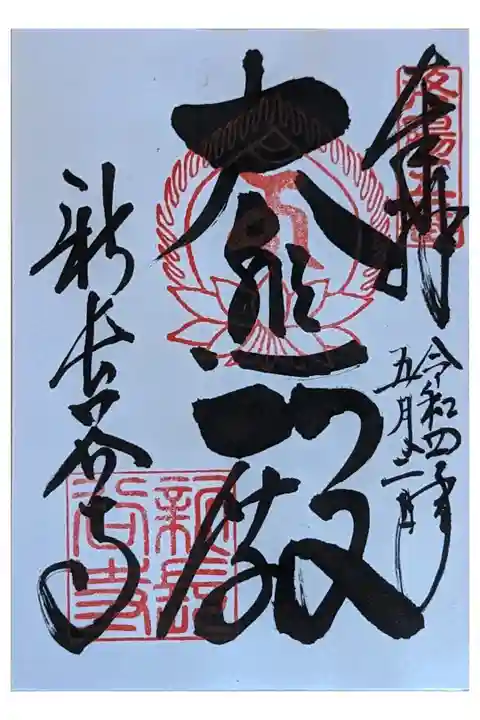 奉拝
令和四年
五月三日
大悲殿
新長谷寺
新長谷寺